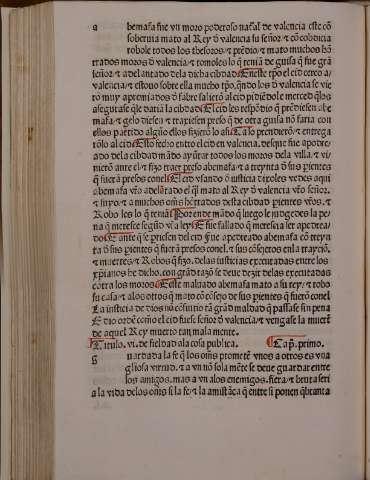 a bemafa fue vn moro poderoso vasal de valencia este cō
soberuia mato al Rey đ valencia su señor ⁊ con cobdicia
robole todos los thesoros/⁊ p̄dio/⁊ mato muchos hō
trados moros đ valencia/⁊ tomoles lo q̄ tenia de guisa q̄ fue grā
señor/⁊ adelantado dela dicha cibdad Eneste tpo el cid cerco a
valencia/⁊ estouo sobre ella mucho tpo q̄ndo los đ valencia se vie
rō muy apremiados đ fabre salierō al cid pidiēdole merced q̄ los
asegurase q̄le dariā la cibdad El cid les respōdio q̄ prēdiesen abe
mafa/⁊ gelo diesen/⁊ traxiesen preso q̄ de otra guisa nō faria con
ellos partido algūo ellos fizierō lo asi Ca lo prendierō/⁊ entrega
rōlo al cid Esto fecho entro el cid en valencia. desque fue apode
ado dela cibdad mādo ayūtar todos los moros dela villa ⁊ vi
nierō ante el/⁊ fizo traer preso abemafa/⁊ a traynta đ sus parientes
que fuerā presos conel El cid vsando đ iusticia dixoles vedes aqui
abemafa vr̄o adelātado el q̄l mato al Rey đ valencia vr̄o señor.
⁊ suyo/⁊ a muchos om̄s hōrrados desta cibdad parientes vr̄os. ⁊
Robo les lo q̄ teniā Por ende mādo q̄ luego le iudgedes la pe
na q̄ meresce segūd vr̄a ley E fue fallado q̄ meresia ser apedrea
do E ante q̄ se partiesen del cid fue apedreado abemafa cō trayn
ta đ sus parientes q̄ fuerā presos conel/⁊ sus cōsejeros en la trayciō.
⁊ muertes/⁊ Robos q̄ fizo. delas iusticias executadas entre los
xp̄ianos he dicho. con grād razō se deue dezir delas executadas
contra los moros Este maluado abemafa mato a su rey/⁊ robo
su casa/⁊ a los otros q̄ mato cō cōsejo de sus parientes q̄ fuerō conel
La iusticia de dios nō cōsintio tā grād maldad q̄ passase sin pena
E dio ordē como el cid fuese señor đ valencia/⁊ vengase la muert̄
de aquel Rey muerto tan mala mente.
Titulo. vi. de fieldad ala cosa publica. Cap. primo.
g uardada la fe q̄ los om̄s prometē vnos a otros es vna
gliosa virtud. ⁊ a vn nō sola mēte se deue guardar entre
los amigos. mas a vn a los enemigos. fiera/⁊ bruta seri
a la vida delos om̄s si la fe/⁊ la amistāça q̄ entre si ponen q̄branta